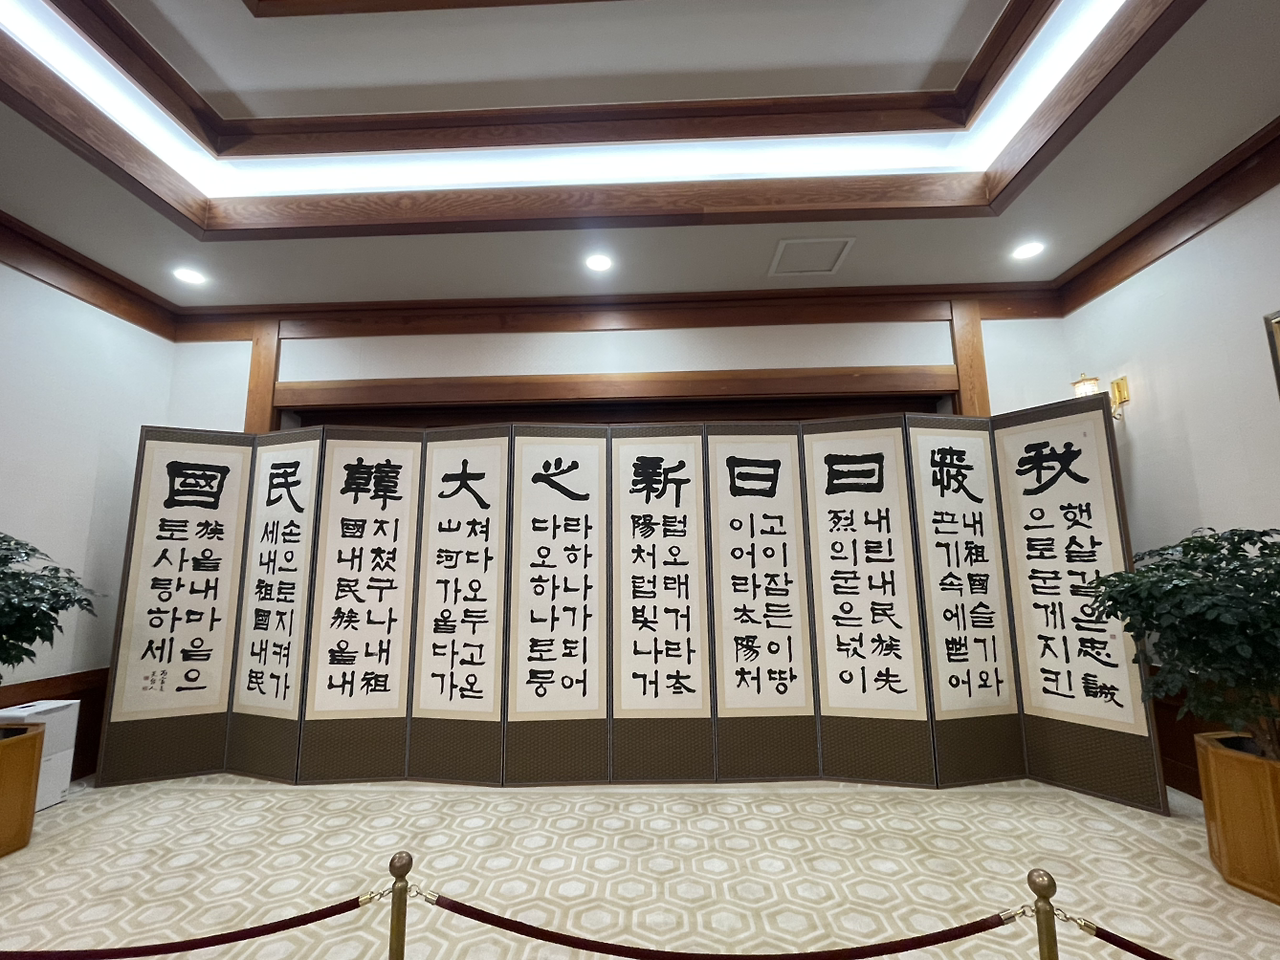 秋 日 日 新 之 大 韓 民 國
햇살같은忠誠
으로굳게지킨
내祖國슬기와
끈기속에뻗어
내린내民族先
烈의굳은넋이
고이잠든이땅
이어라太陽처
럼오래거라太
陽처럼빛나거
라하나가되어
다오하나로뭉
쳐다오두고온
山河가옵다가
지쳤구나내祖
國내民族을내
손으로지켜가
세내祖國내民
族을내마음으
로사랑하세